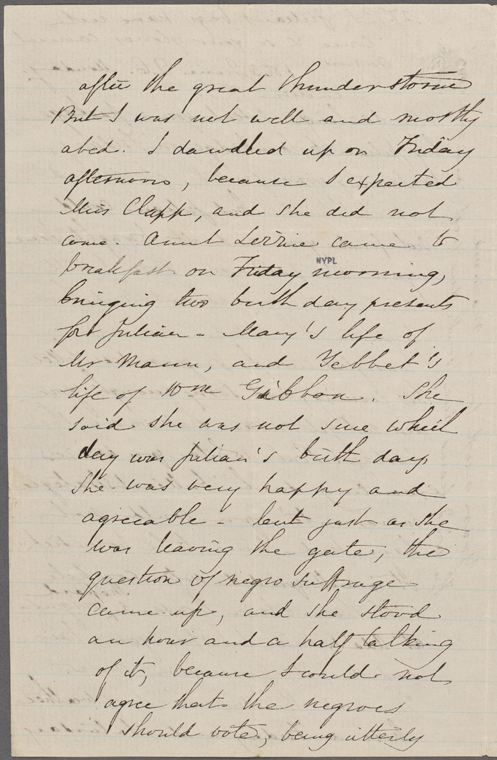 after the great thunderstorm
But I was not well and mostly
abed. I dawdled up on Friday
afternoon, because I expected
Miss Clapp, and she did not
come. Aunt Lizzie came to
NYPL
breakfast on Friday morning,
bringing two birth day presents
for Julian - Mary's life of
Mr Mann, and Tebbet's
life of Wm Gibbon. She
said she was not sure which
day was Julian's birth day.
She was very happy and
agreeable - but just as she
was leaving the gate, the
question of negro suffrage
came up, and she stood
an hour and a half talking
of it, because I could not
agree that the negroes
should vote, being utterly